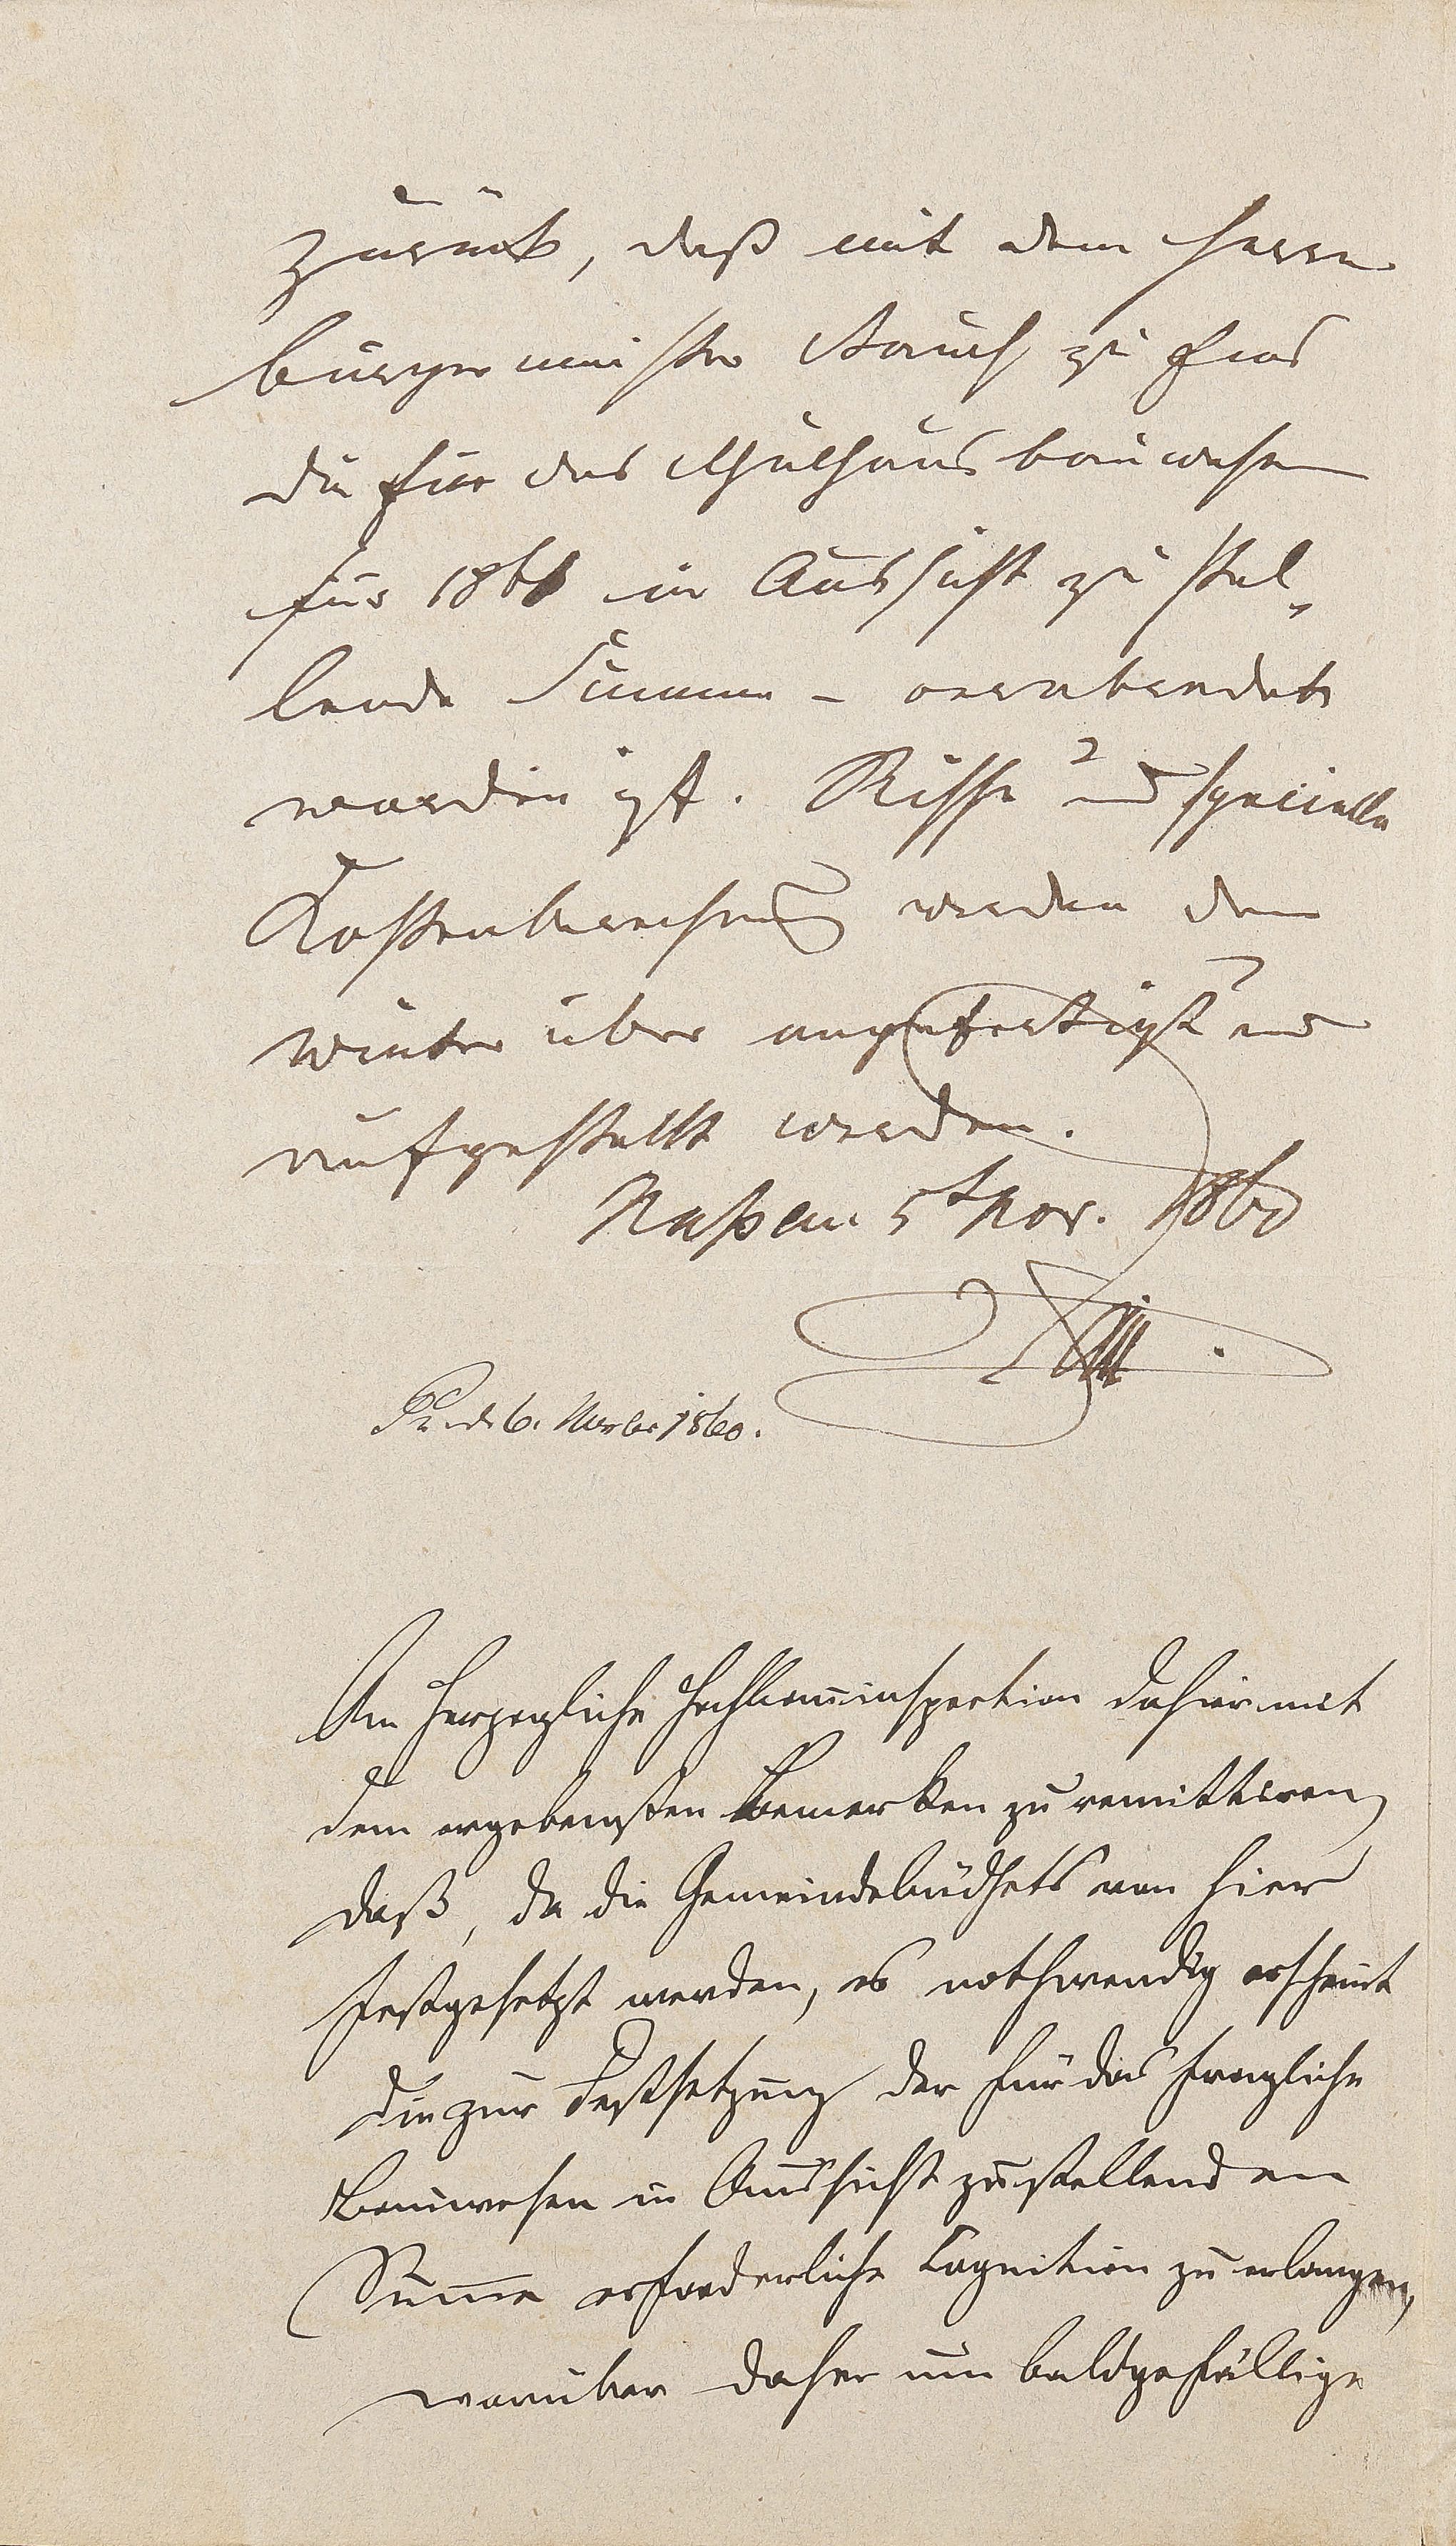 zurück, daß mit dem Herrn
Bürgermeister zu
die für das Schulhausbauwesen
für 1861 in Aussicht zu stel-
lende Summe - verabredet
worden ist. Risse und specielle
Kostenberechnung werden den
Winter über angefertigt und
aufgestellt werden.
Nassau 5t Nov. 1860
Pr. d. 6. Novbr 1860.
An Herzogliche Hochbauinspection dahier mit
dem ergebensten Bemerken zu remittiren,
daß, da die Gemeindebüdgets von hier
festgesetzt werden, es nothwendig erscheint
die zur Festsetzung der für das fragliche
Bauwesen in Aussicht zu stellenden
Summe erforderliche Cognition zu erlangen,
worüber daher um baldgefällige